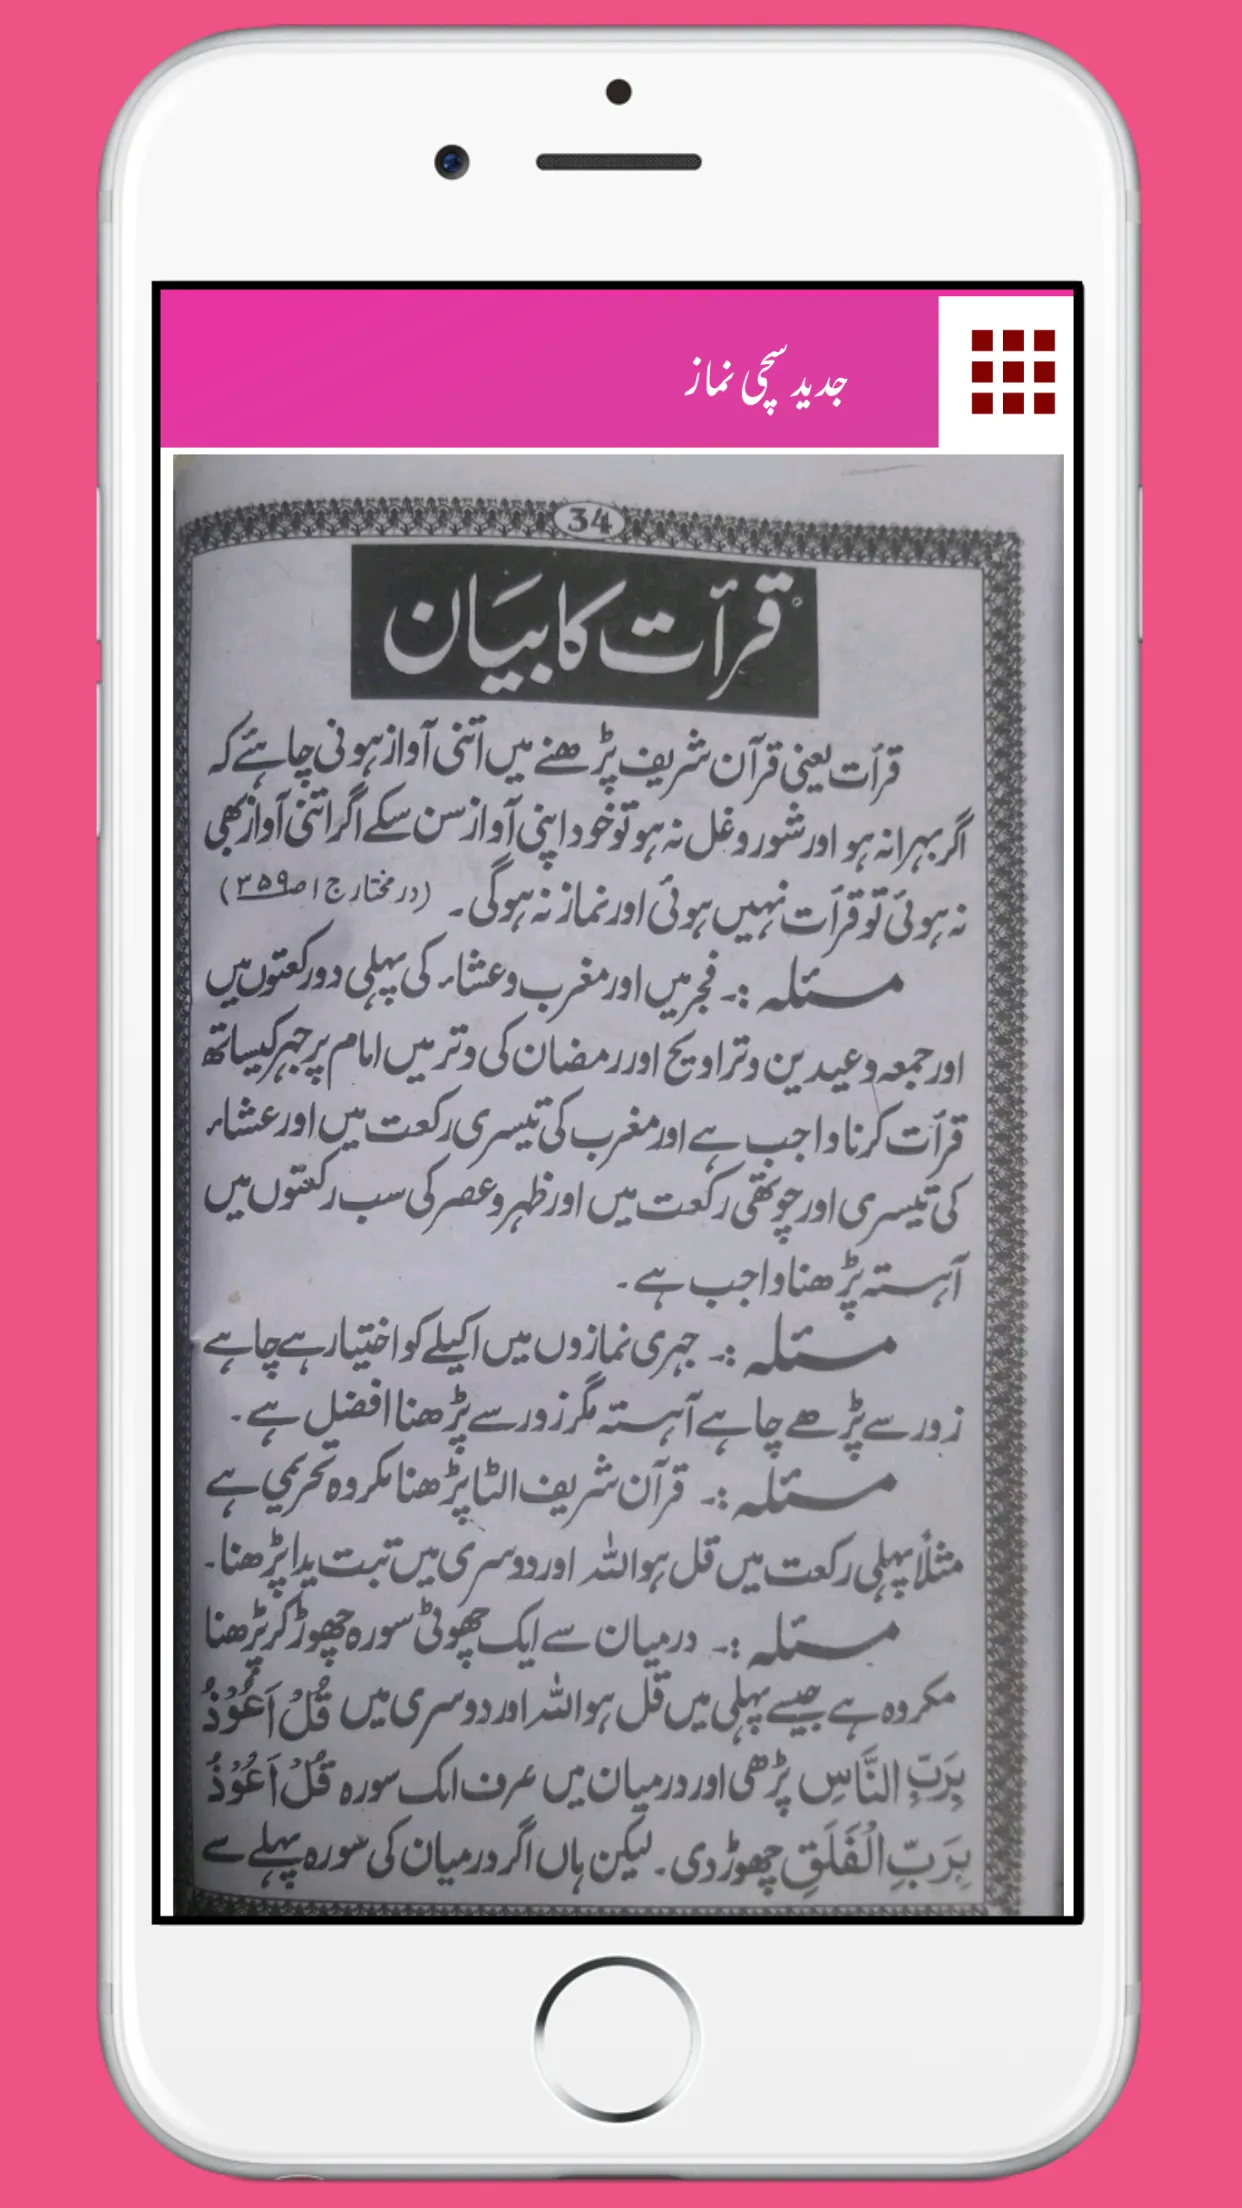 جدید سچی نماز
34
قرأت کا بیان
قرأت یعنی قرآن شریف پڑھنے میں اتنی آواز ہونی چاہئے کہ
اگر بہرا نہ ہو اور شور و غل نہ ہو تو خود اپنی آواز سن سکے اگر اتنی آواز بھی
نہ ہوئی تو قرأت نہیں ہوئی اور نماز نہ ہوگی۔ (در مختار ج ۱ ص ۳۵۹)
مسئلہ :۔ فجر میں اور مغرب و عشاء کی پہلی دو رکعتوں میں
اور جمعہ و عیدین و تراویح اور رمضان کی وتر میں امام پر جہر کیساتھ
قرأت کرنا واجب ہے اور مغرب کی تیسری رکعت میں اور عشاء
کی تیسری اور چوتھی رکعت میں اور ظہر و عصر کی سب رکعتوں میں
آہستہ پڑھنا واجب ہے۔
مسئلہ :۔ جہری نمازوں میں اکیلے کو اختیار ہے چاہے
زور سے پڑھے چاہے آہستہ مگر زور سے پڑھنا افضل ہے۔
مسئلہ :۔ قرآن شریف الٹا پڑھنا مکروہ تحریمی ہے
مثلاً پہلی رکعت میں قل ہو اللہ اور دوسری میں تبت یدا پڑھنا۔
مسئلہ :۔ درمیان سے ایک چھوٹی سورہ چھوڑ کر پڑھنا
مکروہ ہے جیسے پہلی میں قل ہو اللہ اور دوسری میں قُلْ اَعُوْذُ
بِرَبِّ النَّاسِ پڑھی اور درمیان میں صرف ایک سورہ قُلْ اَعُوْذُ
بِرَبِّ الْفَلَقِ چھوڑ دی۔ لیکن ہاں اگر درمیان کی سورہ پہلے سے